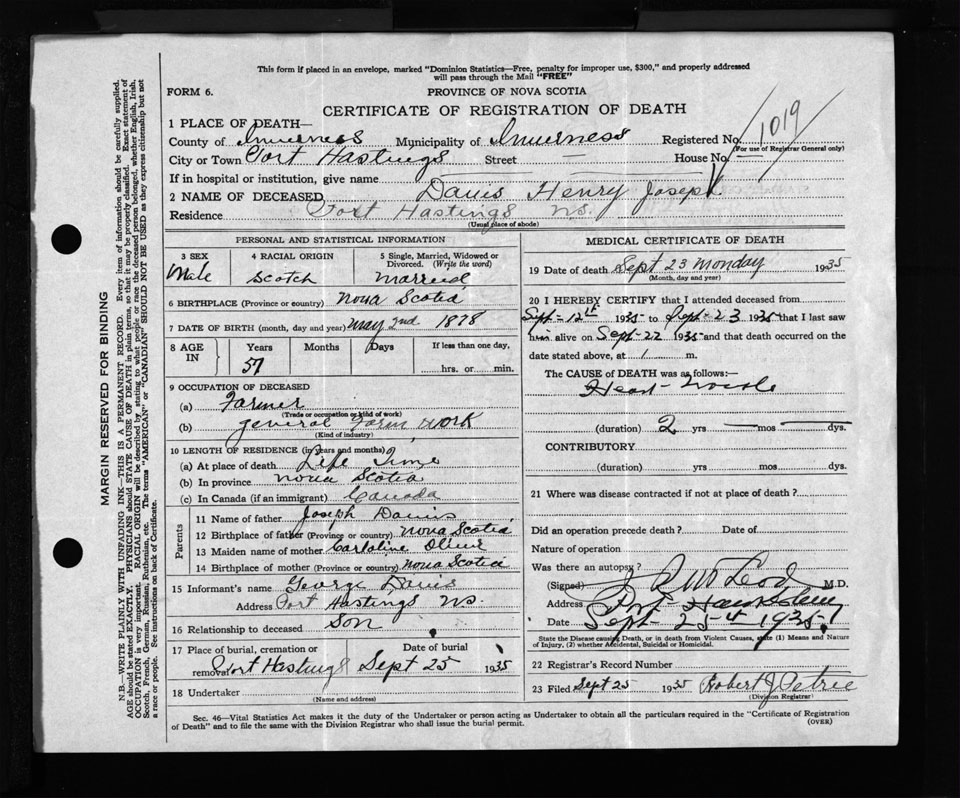 This form if placed in an envelope, marked "Dominion Statistics—Free, penalty for improper use, $300," and properly addressed
will pass through the Mail "FREE"
FORM 6. PROVINCE OF NOVA SCOTIA
CERTIFICATE OF REGISTRATION OF DEATH
1 PLACE OF DEATH—
County of Inverness Municipality of Inverness Registered No. 1019
(For use of Registrar General only)
City or Town Port Hastings Street — House No. —
If in hospital or institution, give name
2 NAME OF DECEASED Davis Henry Joseph
Residence Port Hastings NS.
(Usual place of abode)
PERSONAL AND STATISTICAL INFORMATION
3 SEX 4 RACIAL ORIGIN 5 Single, Married, Widowed or
Divorced. (Write the word)
Male Scotch Married
6 BIRTHPLACE (Province or country) Nova Scotia
7 DATE OF BIRTH (month, day and year) May 2nd 1878
8 AGE IN Years Months Days If less than one day,
57 hrs. or min.
9 OCCUPATION OF DECEASED
(a) Farmer
(Trade or occupation or kind of work)
(b) general Farm work
(Kind of industry)
10 LENGTH OF RESIDENCE (in years and months)
(a) At place of death Life Time
(b) In province Nova Scotia
(c) In Canada (if an immigrant) Canada
Parents
11 Name of father Joseph Davis
12 Birthplace of father (Province or country) Nova Scotia
13 Maiden name of mother
14 Birthplace of mother (Province or country) Nova Scotia
15 Informant's name George Davis
Address Port Hastings NS.
16 Relationship to deceased Son
17 Place of burial, cremation or Date of burial
removal Port Hastings Sept 25 1935
18 Undertaker
(Name and address)
MEDICAL CERTIFICATE OF DEATH
19 Date of death Sept 23 Monday 1935
(Month, day and year)
20 I HEREBY CERTIFY that I attended deceased from
Sept-12th 1935 to Sept-23 1935 that I last saw
him alive on Sept-22 1935 and that death occurred on the
date stated above, at 1 m.
The CAUSE of DEATH was as follows:—
Heart
(duration) 2 yrs — mos — dys.
CONTRIBUTORY
(duration) yrs mos dys.
21 Where was disease contracted if not at place of death?
Did an operation precede death? Date of
Nature of operation
Was there an autopsy?
(Signed) McLeod M.D.
Address Port Hawkesbury
Date Sept-25-4 1935
State the Disease causing Death, or in death from Violent Causes, state (1) Means and Nature
of Injury, (2) whether Accidental, Suicidal or Homicidal.
22 Registrar's Record Number
23 Filed Sept 25 1935 Robert J Petrie
(Division Registrar)
Sec. 46—Vital Statistics Act makes it the duty of the Undertaker or person acting as Undertaker to obtain all the particulars required in the "Certificate of Registration
of Death" and to file the same with the Division Registrar who shall issue the burial permit. (OVER)
MARGIN RESERVED FOR BINDING
N.B.—WRITE PLAINLY WITH UNFADING INK—THIS IS A PERMANENT RECORD. Every item of information should be carefully supplied.
AGE should be stated EXACTLY. PHYSICIANS should STATE CAUSE OF DEATH in plain terms, so that it may be properly classified. Exact statement of
OCCUPATION is very important. RACIAL ORIGIN will be described by stating to what people or race the deceased person belonged, whether English, Irish,
Scotch, French, German, Russian, Ruthenian, etc. The terms "AMERICAN" or "CANADIAN" SHOULD NOT BE USED as they express citizenship but not
a race or people. See instructions on back of Certificate.